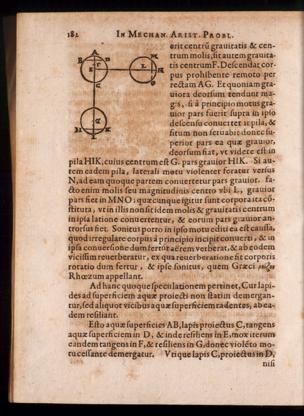 182 IN MECHAN. ARIST. PROBL.
erit centrũ grauitatis & cen-
trum molis, sit autem grauita-
tis centrum F. Descendat cor-
pus prohibente remoto per
rectam AG. Et quoniam gra-
uiora deorsum tendunt ma-
gis, si à principio motus gra-
uior pars fuerit supra in ipso
descensu conuertet se pila, &
situm non seruabit donec su-
perior pars ea quæ grauior,
deorsum fiat, vt videre est in
pila HIK, cuius centrum est G. pars grauior HIK. Si au-
tem eadem pila, laterali motu violenter feratur versus
N, ad eam quoque partem conuertetur pars grauior. fa-
cto enim molis seu magnitudinis centro vbi L, grauior
pars fiet in MNO: quæcunque igitur sunt corpora ita cõ-
stituta, vt in illis non sit idem molis & grauitatis centrum
in ipsa latione conuertentur, & eorum pars grauior an-
trorsus fiet. Sonitus porro in ipso motu editi ea est causa,
quod irregulare corpus à principio incipit conuerti, & in
ipsa conuersione dum fertur aërem verberat, & ab eodem
vicissim reuerberatur, ex qua reuerberatione fit corporis
rotatio dum fertur, & ipse sonitus, quem Græci
Rhœzum appellant.
Ad hanc quoque speculationem pertinet, Cur lapi-
des ad superficiem aquæ proiecti non statim demergan-
tur, sed aliquot vicibus aquæ superficiem radentes, ab ea-
dem resiliant.
Esto aquæ superficies AB, lapis proiectus C, tangens
aquæ superficiem in D, & inde resiliens in E, mox iterum
eandem tangens in F, & resiliens in G, donec violẽto mo-
tu cessante demergatur. Vtique lapis C, proiectus in D,
nisi